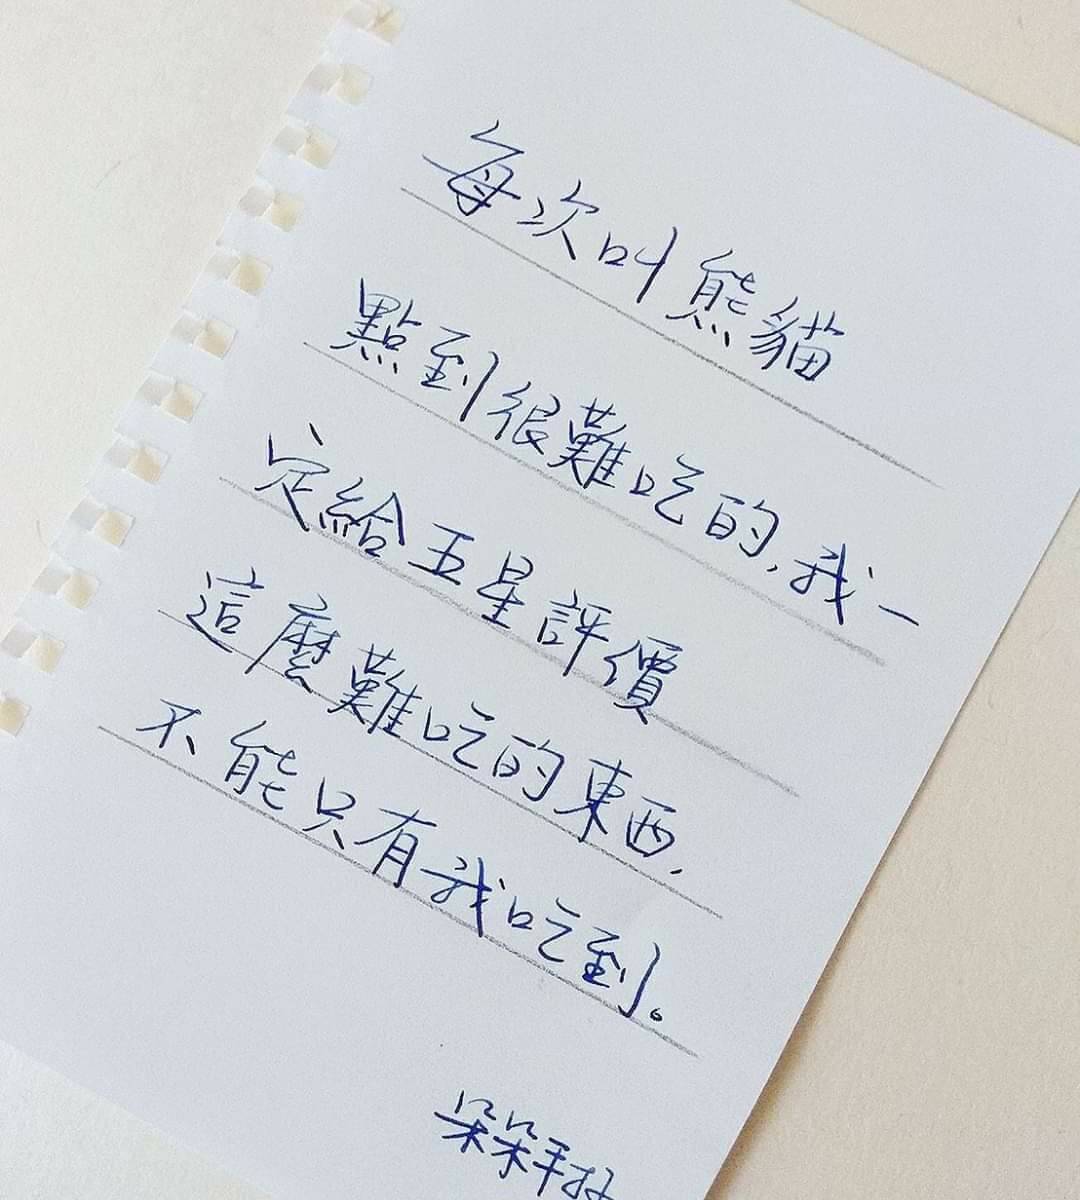 每次叫熊貓
點到很難吃的,我一
定給五星評價
這麼難吃的東西,
不能只有我吃到。
朵朵手